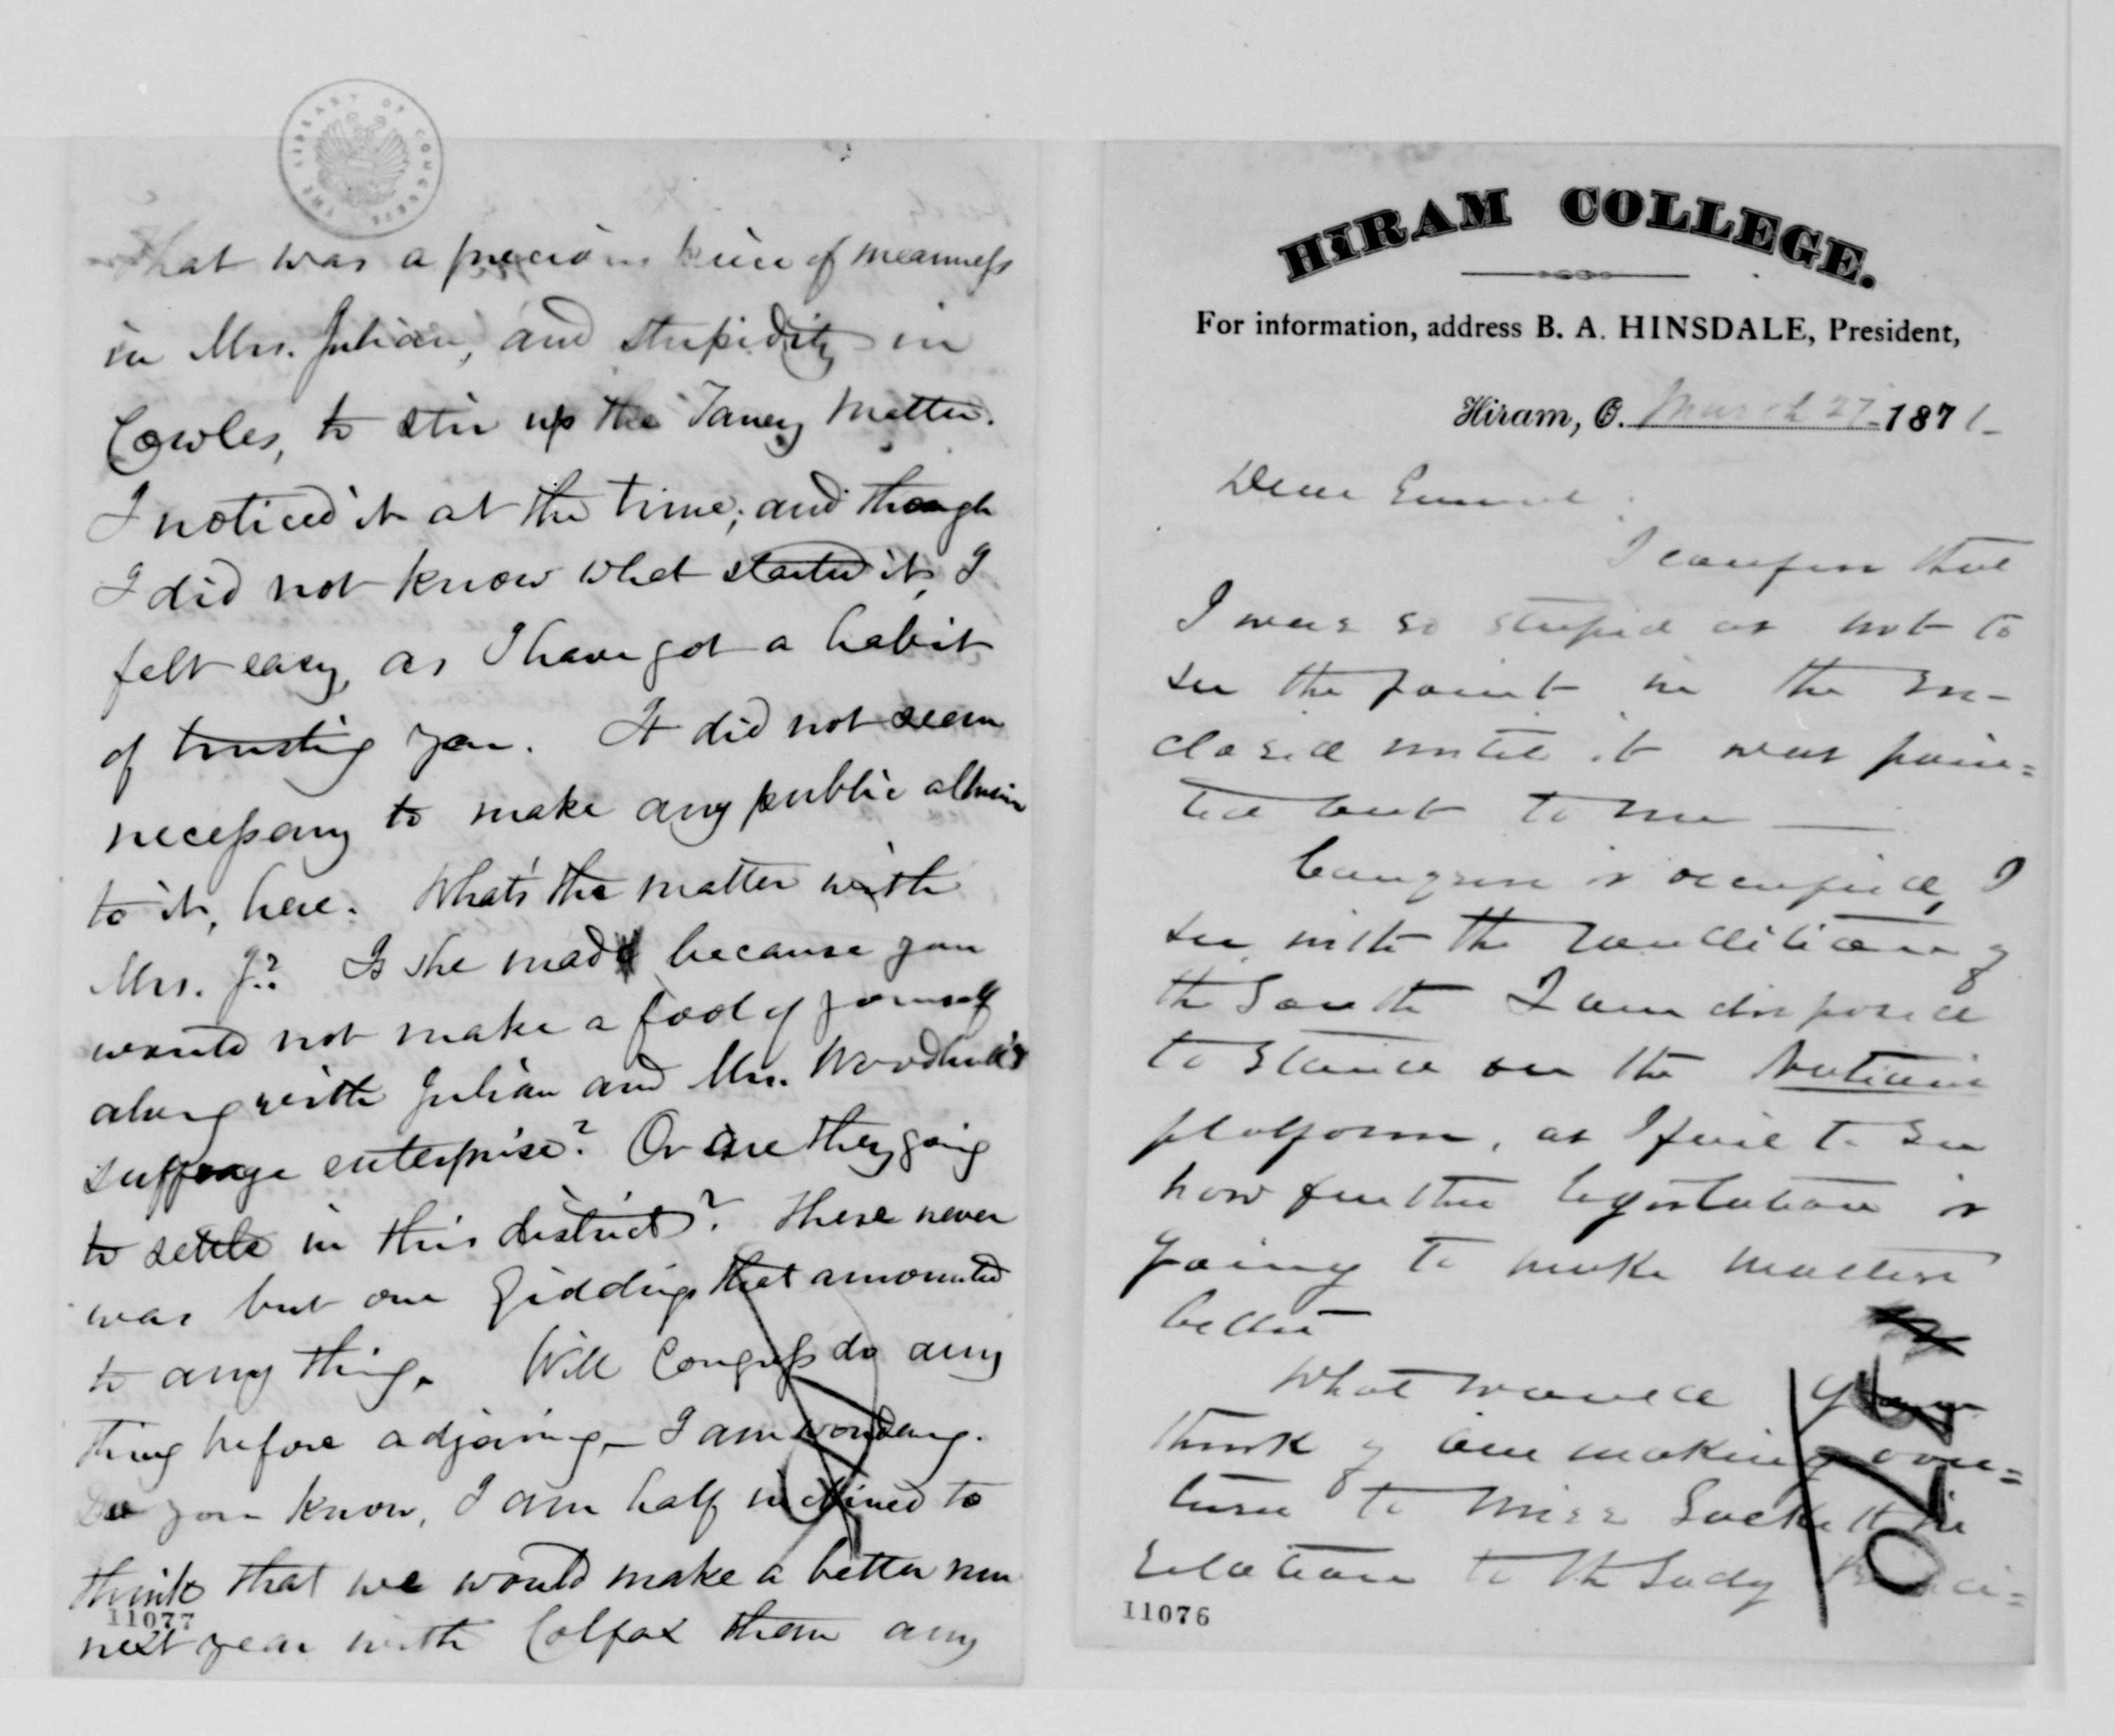 THE LIBRARY OF CONGRESS
That was a precious piece of meanness
in Mrs. Julian, and stupidity in
Cowles, to stir up the Taney matter.
I noticed it at the time; and though
I did not know what started it, I
felt easy, as I have got a habit
of trusting you. It did not seem
necessary to make any public allusion
to it, here. What's the matter with
Mrs. J.? Is she mad because you
would not make a fool of yourself
along with Julian and Mrs. Woodhull's
suffrage enterprise? Or are they going
to settle in this district? There never
was but one Giddings that amounted
to any thing. Will Congress do any
thing before adjoining— I am wondering.
Do you know, I am half inclined to
think that we would make a better run
11077
next year with Colfax than any
HIRAM COLLEGE.
For information, address B. A. HINSDALE, President,
Hiram, O. March 27 1871
Dear
I confess that
I was so stupid as not to
see the point in the en-
closed until it was poin=
ted out to me —
Congress is occupied, I
see, with the condition of
the South I am disposed
to stand on the Nation's
platform, as I fail to see
how further legislation is
going to make matters
better
What would you
think of our making over=
tures to Miss Lockett in
relation to the Lady Princi=
11076